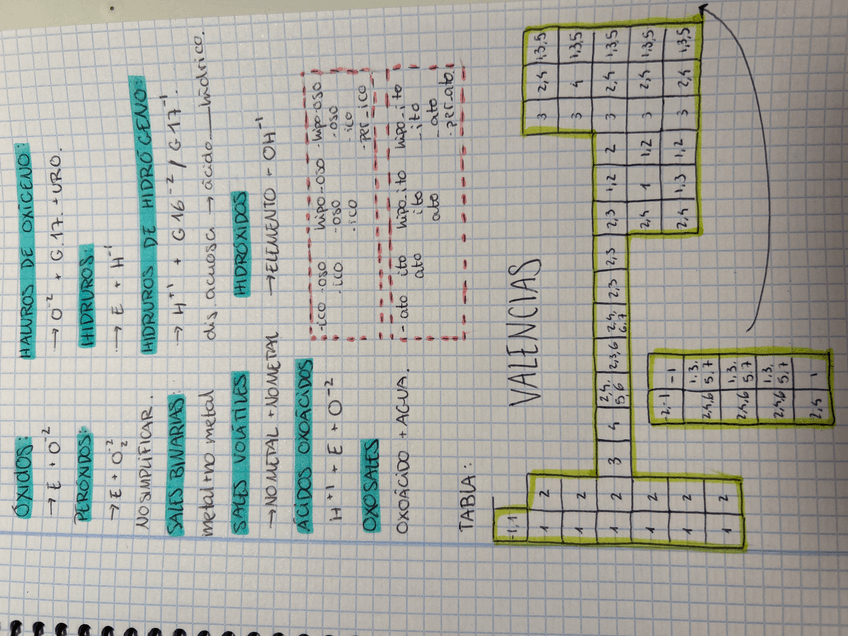 ÓXIDOS:
→ E + O⁻²
PERÓXIDOS:
→ E + O₂⁻²
NO SIMPLIFICAR.
SALES BINARIAS:
metal + no metal
SALES VOLÁTILES
→ NO METAL + NO METAL
HALUROS DE OXÍGENO:
→ O⁻² + G.17. + URO.
HIDRUROS:
→ E + H⁻¹
HIDRUROS DE HIDRÓGENO:
→ H⁺¹ + G16⁻² / G17⁻¹.
dis. acuosa → ácido __ hídrico.
HIDRÓXIDOS
→ ELEMENTO - OH⁻¹
ÁCIDOS OXOÁCIDOS
H⁺¹ + E + O⁻²
-ico -oso hipo-oso .hipo-oso
.ico .oso -oso
.ico .ico
.per-ico
OXOSALES
OXOÁCIDO + AGUA.
- ato ito hipo.ito hipo-ito
ato ito -ito
ato -ato
.per-ato.
TABLA:
VALENCIAS
-1,1
1 2 3 2,4 1,3,5
1 2 3 4 1,3,5
1 2 3 4 2,4,5,6 2,3,6 2,4,6,7 2,3 2,3 2,3 1,2 2 3 2,4 1,3,5
1 2 2,4 1 1,2 3 2,4 1,3,5
1 2 2,4 1,3 1,2 3 2,4 1,3,5
1 2
2,-1 -1
2,4,6 1,3,5,7
2,4,6 1,3,5,7
2,4,6 1,3,5,7
2,4 1